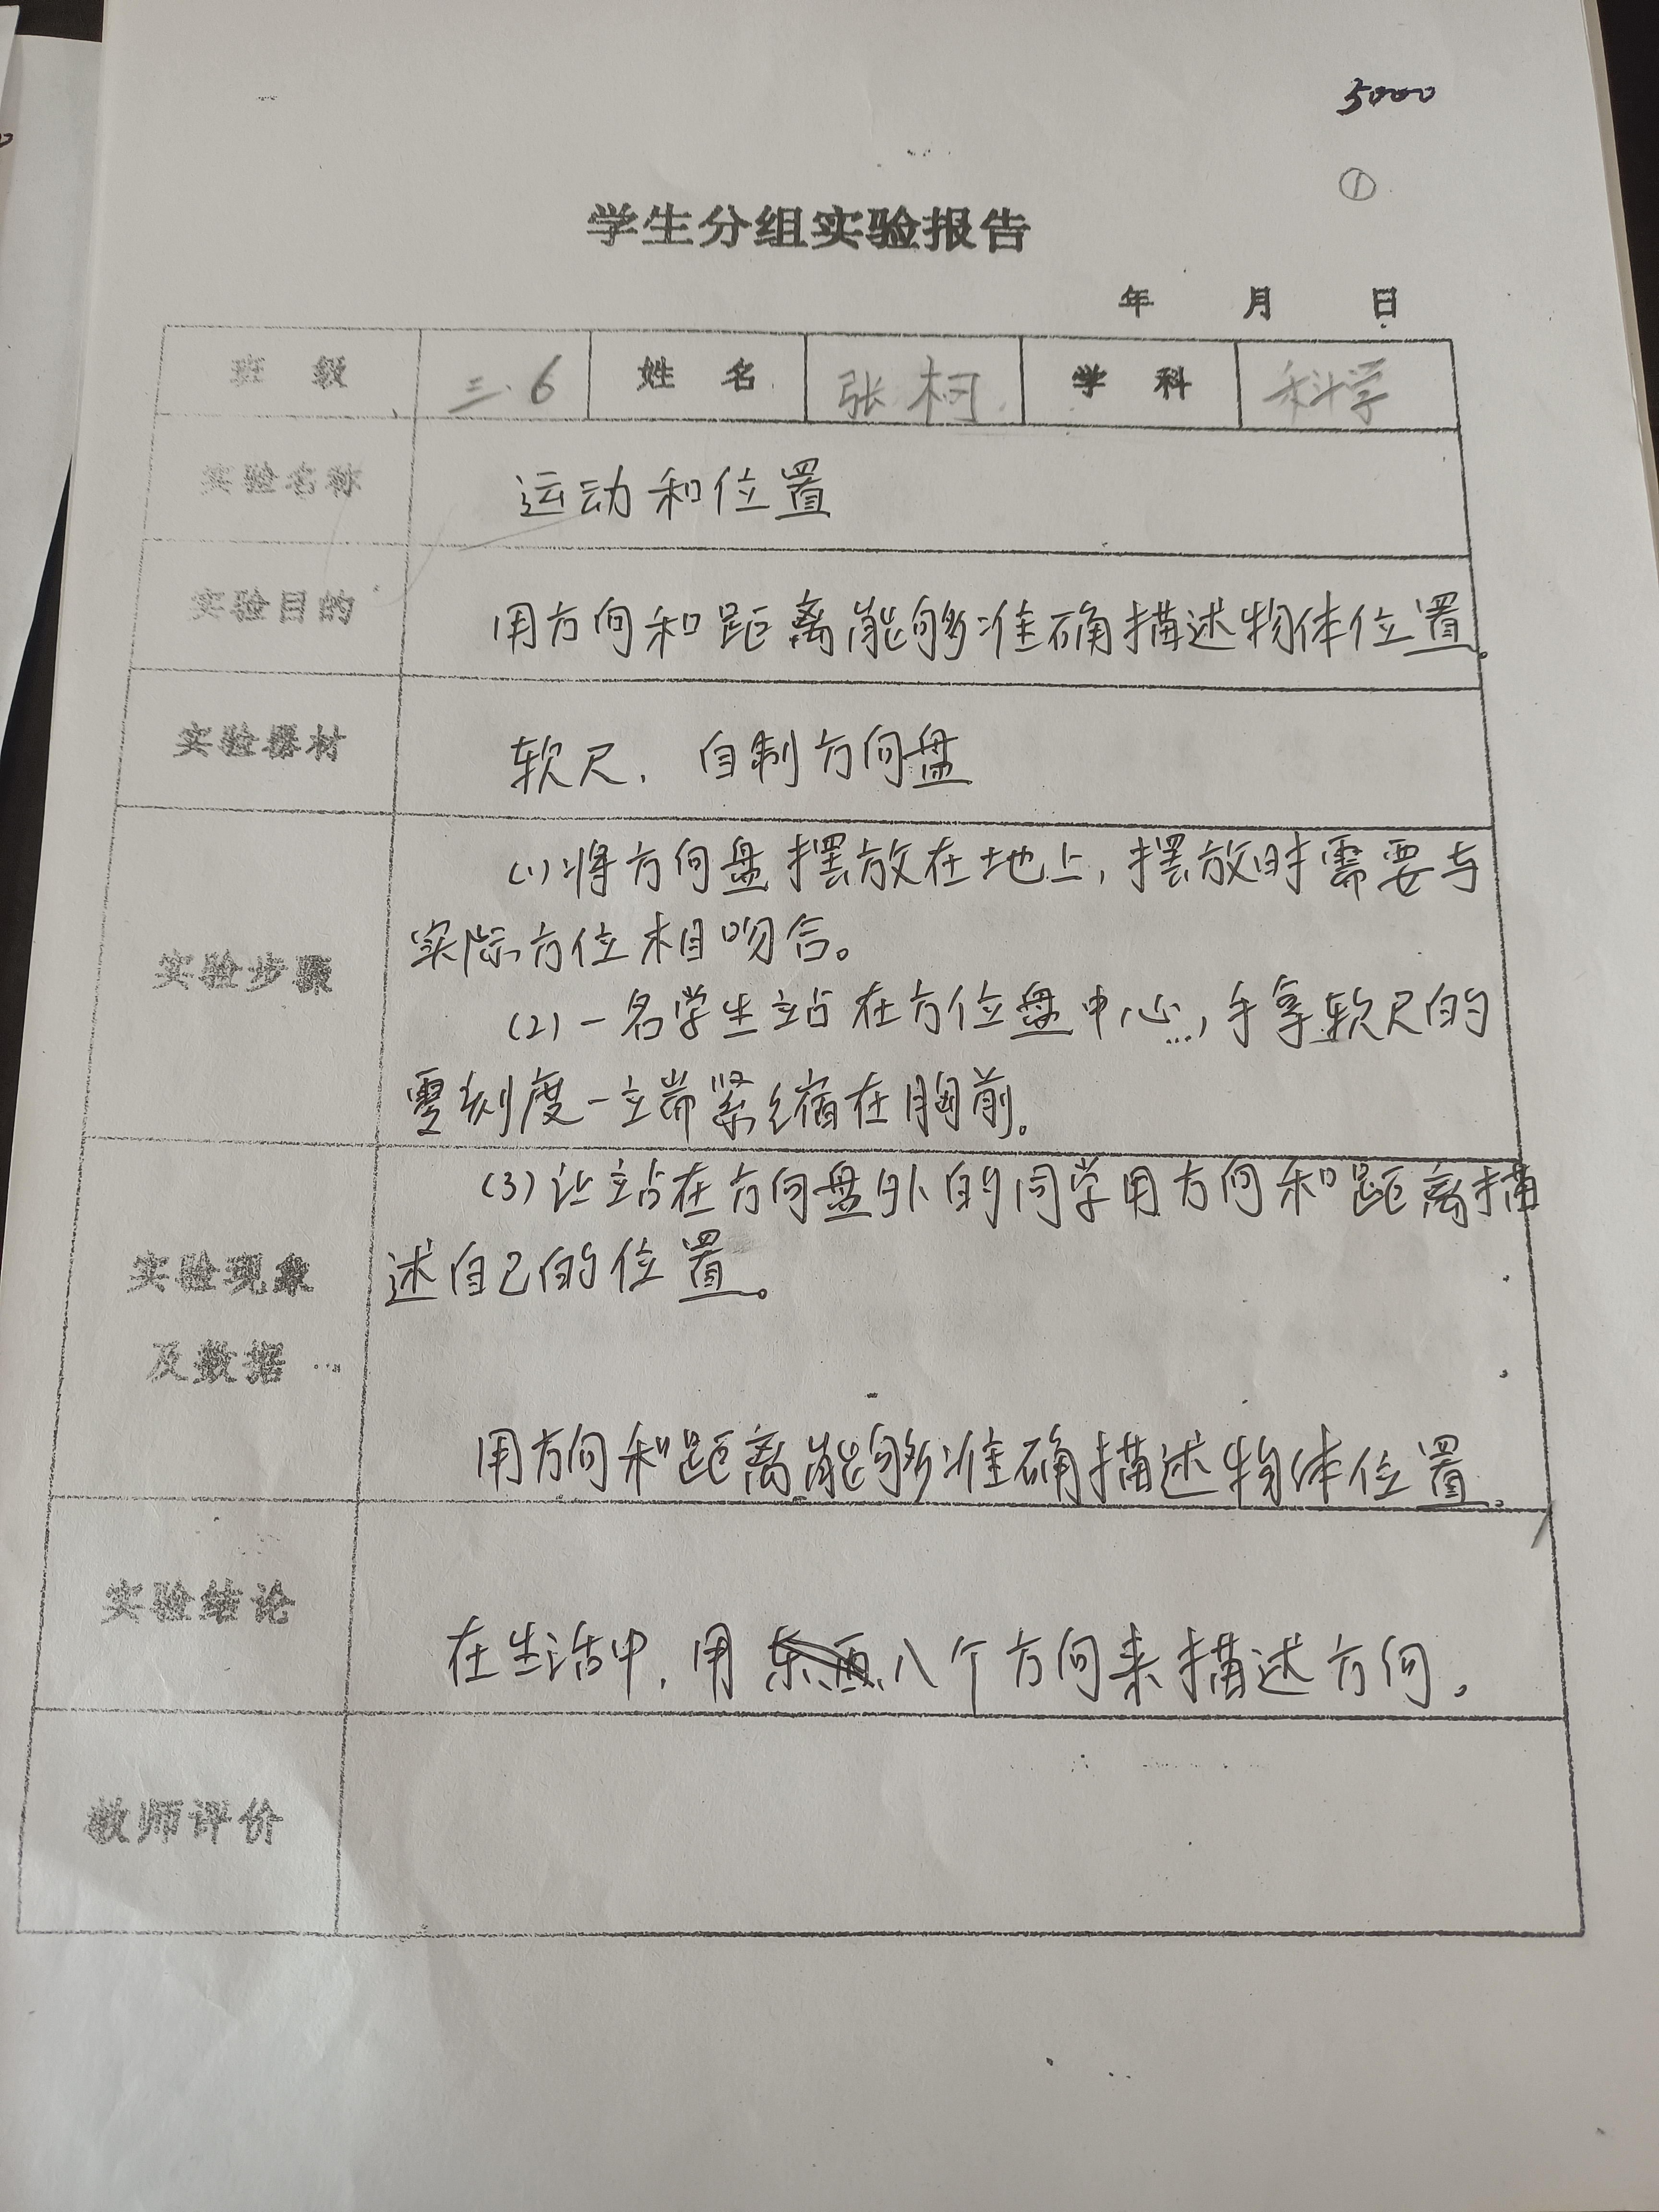 5000
①
学生分组实验报告
年 月 日
班 级 三.6 姓 名 张柯 学 科 科学
实验名称 运动和位置
实验目的 用方向和距离能够准确描述物体位置。
实验器材 软尺、自制方向盘
(1)将方向盘摆放在地上,摆放时需要与
实际方位相吻合。
实验步骤
(2)一名学生站在方位盘中心,手拿软尺的
零刻度一端紧缩在胸前。
(3)让站在方向盘外的同学用方向和距离描
述自己的位置。
实验现象
及数据
用方向和距离能够准确描述物体位置。
实验结论
在生活中,用八个方向来描述方向。
教师评价